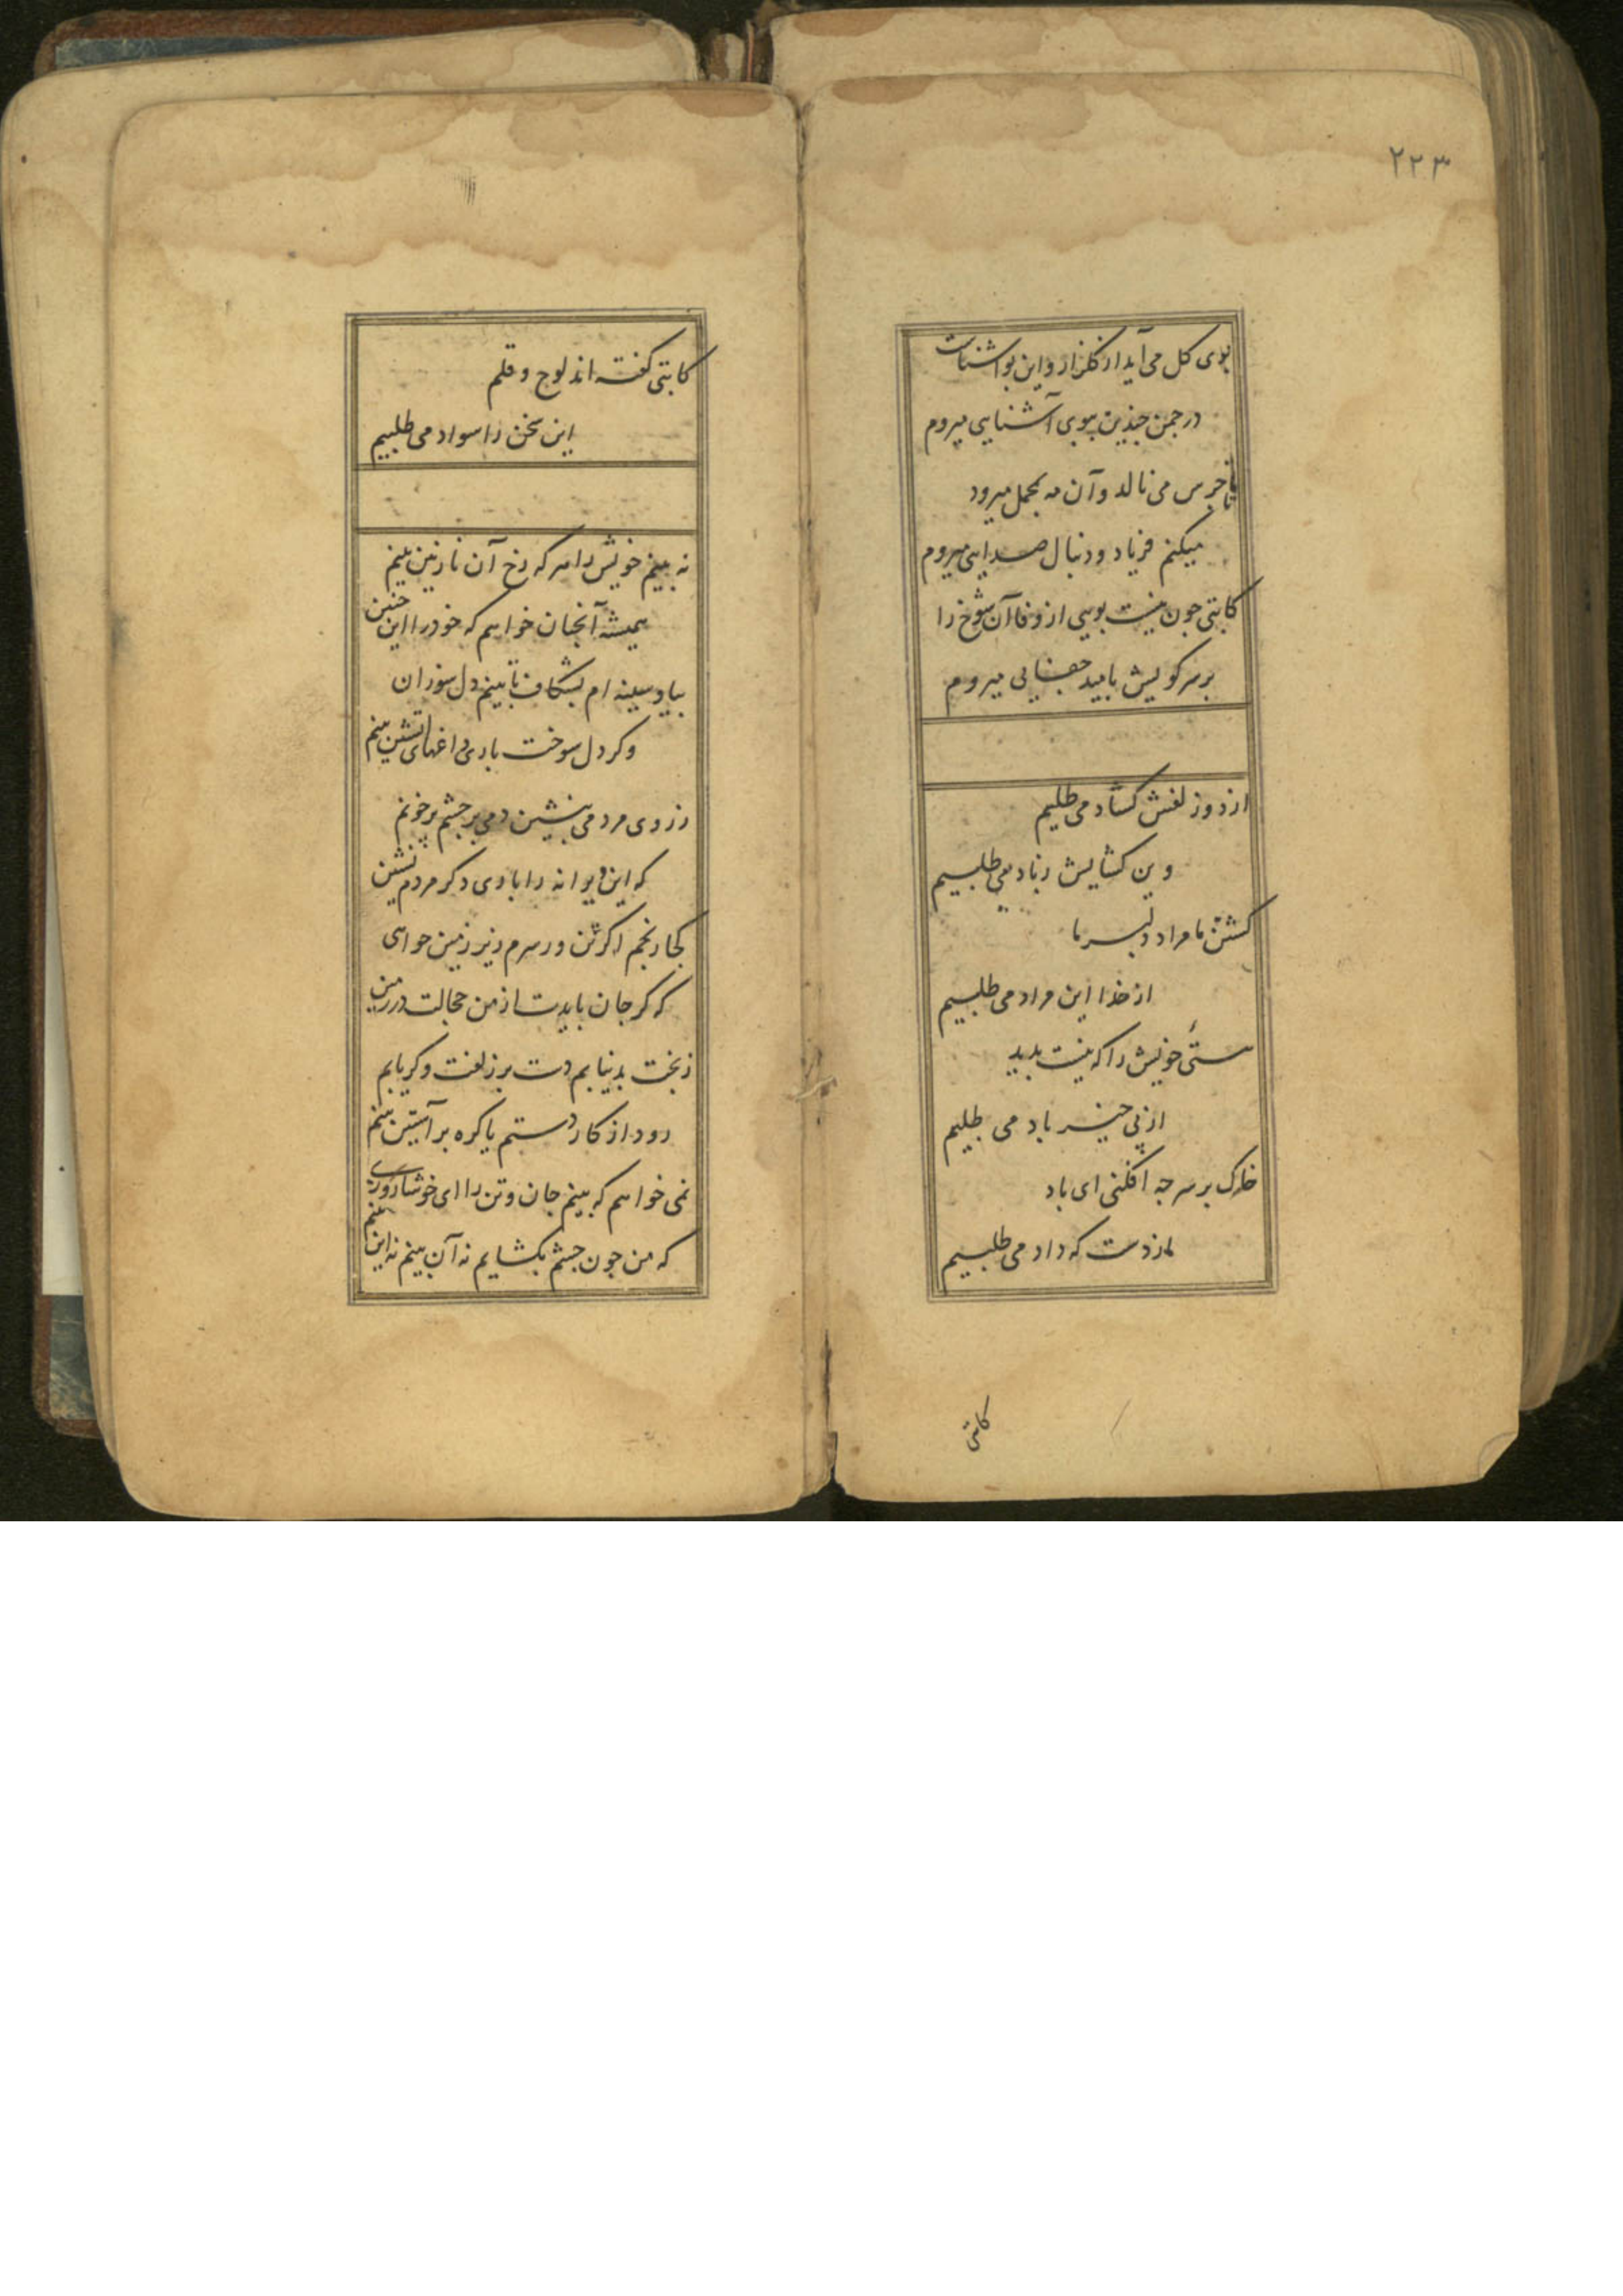 ۲۲۳
بوی کل می آید از کلزار و این بو آشناست
در جمن جندین ببوی آشنایی میروم
تا جرس می نالد و آن مه بمحمل میرود
میکنم فریاد و دنبال صدایی میروم
کاتبی جون نیست بویی از وفا آن شوخ را
بر سر کویش بامید جفایی میروم
از دو زلفش کشاد می طلبیم
وین کشایش زیاد می طلبیم
کشتن ما مراد دلبر ما
از خدا این مراد می طلبیم
هستی خویش را که نیست بدید
از پی خیر باد می طلبیم
خاک بر سر جه افکنی ای باد
ما ز دست که داد می طلبیم
کاتبی
کاتبی کفته اند لوح و قلم
این سخن را سواد می طلبیم
نه بینم خویش را هر که رخ آن نازنین بینم
همیشه آنجنان خواهم که خود را این جنین
بیا و سینه ام بشکاف تا بینم دل سوزان
وکر دل سوخت باری داغهای آتشین بینم
ز روی مردمی بنشین دمی بر جشم پر خونم
که این ویرانه را باری دکر مردم نشین
کجا رنجم اکر تن ور سرم زیر زمین خواهی
که کر جان بایدت از من خجالت در زمین
ز بخت بد نیابم دست بر زلفت وکر یابم
رود از کار دستم یا کره بر آستین بینم
نمی خواهم که بینم جان و تن را ای خوشا روزی
که من جون جشم بکشایم نه آن بینم نه این بینم